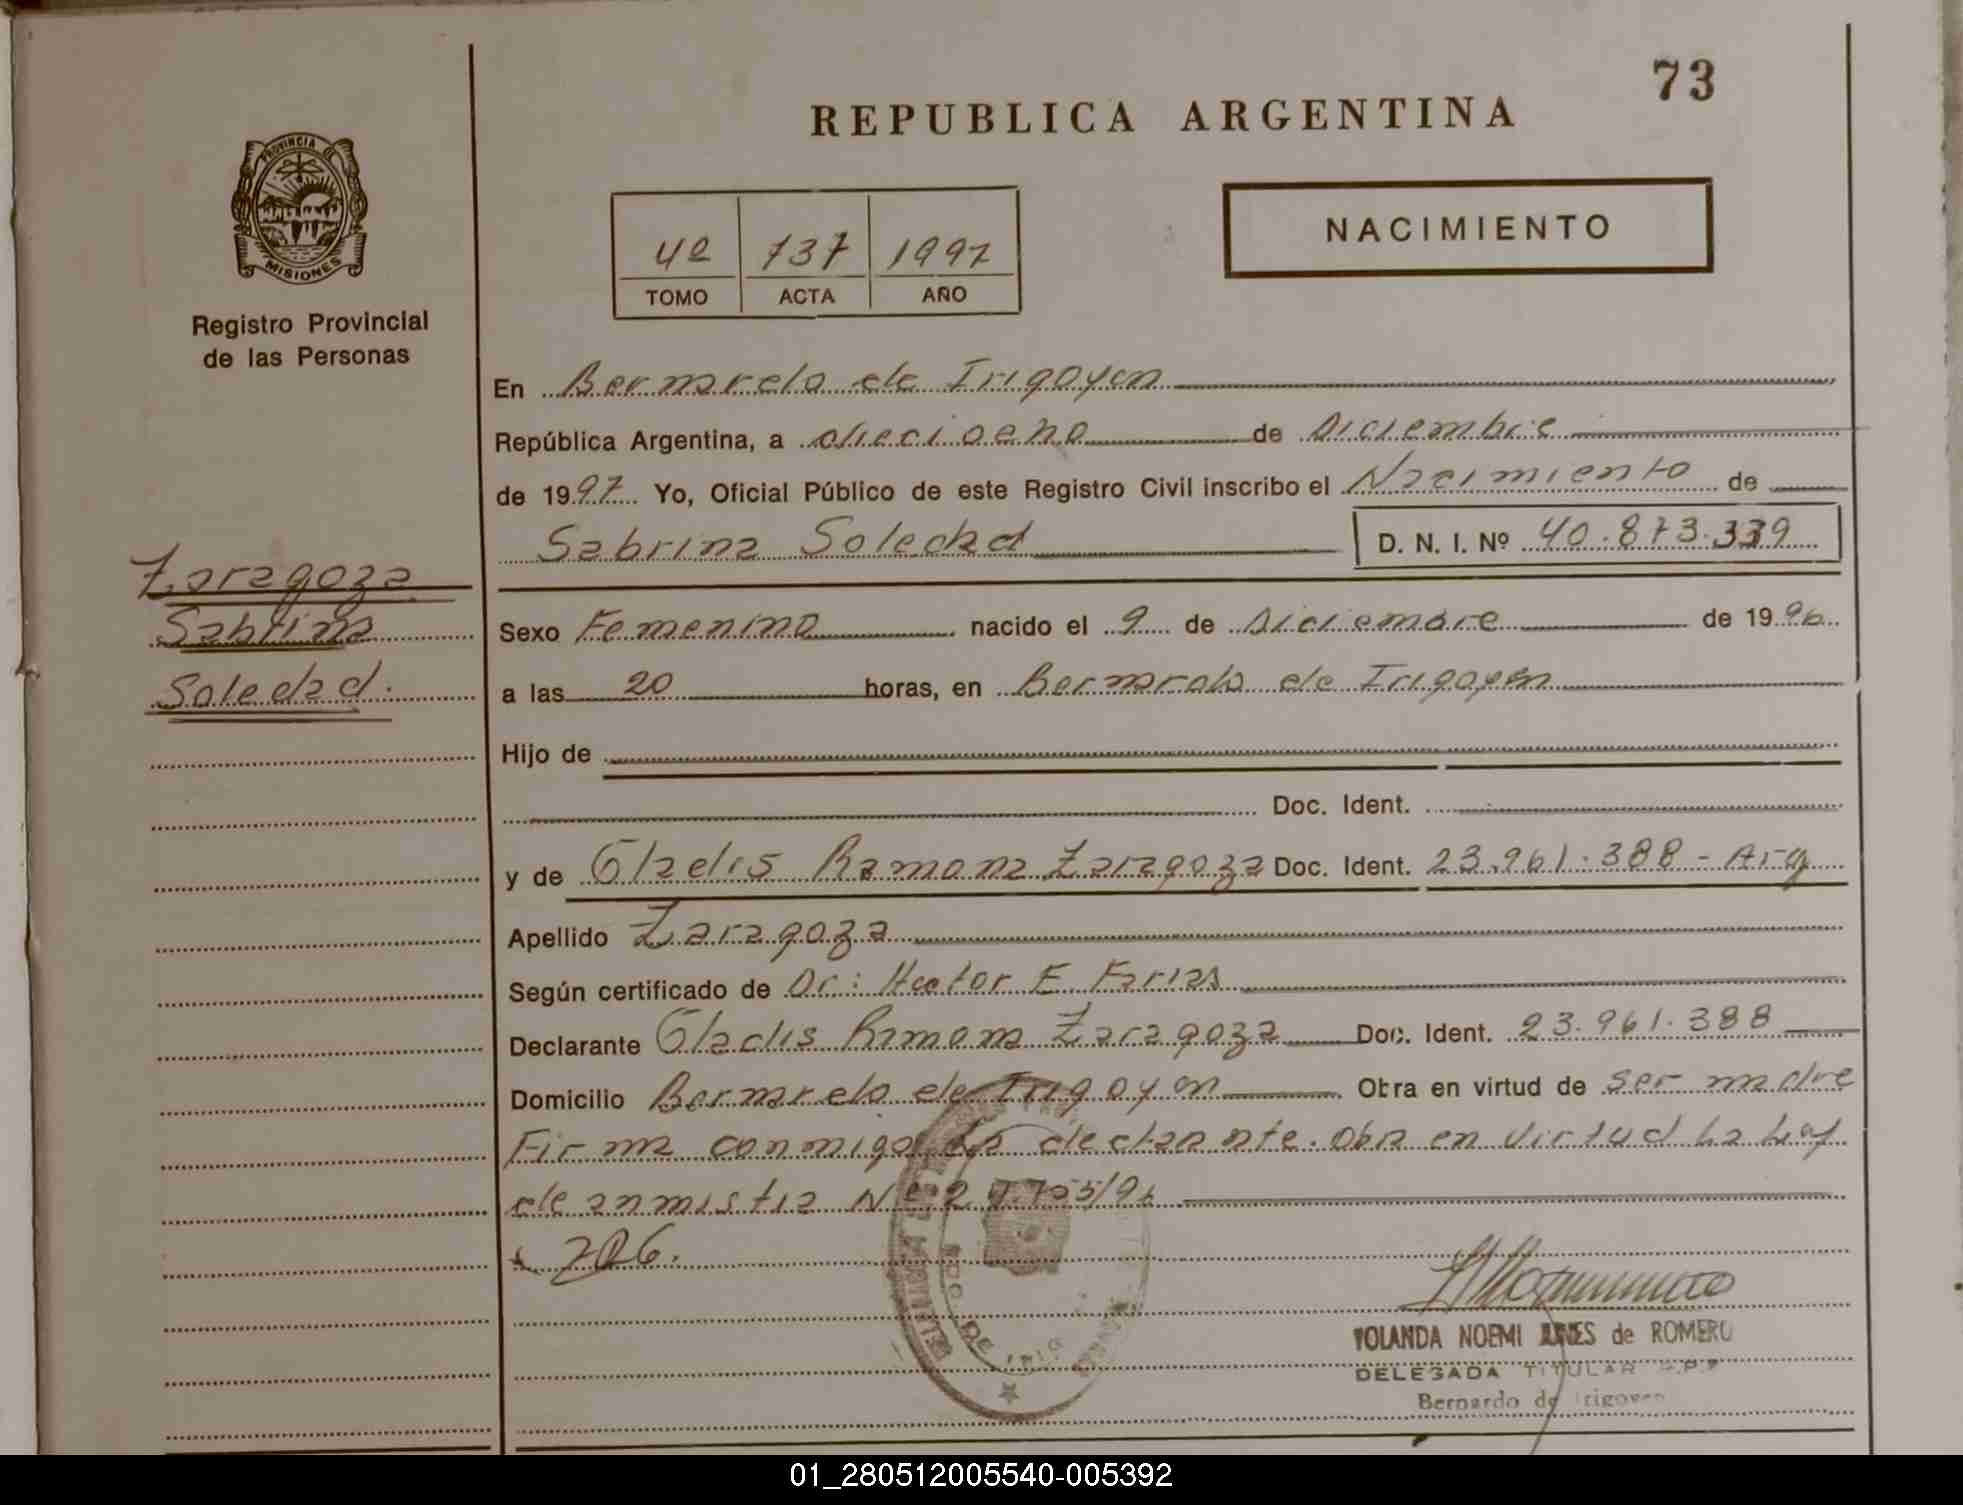 73
REPUBLICA ARGENTINA
PROVINCIA DE
MISIONES
4º 737 1997
TOMO ACTA AÑO
NACIMIENTO
Registro Provincial
de las Personas
En Bernardo de Irigoyen
República Argentina, a dieciocho de Diciembre
de 1997 Yo, Oficial Público de este Registro Civil inscribo el Nacimiento de
Sabrina Soledad D. N. I. Nº 40.873.339
Zaragoza
Sabrina
Soledad.
Sexo Femenino nacido el 9 de Diciembre de 1996
a las 20 horas, en Bernardo de Irigoyen
Hijo de
Doc. Ident.
y de Gladis Ramona Zaragoza Doc. Ident. 23.961.388 - Arg
Apellido Zaragoza
Según certificado de Dr: Hector E. Farias
Declarante Gladis Ramona Zaragoza Doc. Ident. 23.961.388
Domicilio Bernardo de Irigoyen Obra en virtud de ser madre
Firma conmigo la declarante. Obra en virtud la Ley
de anmistia Nº
206.
YOLANDA NOEMI de ROMERO
DELEGADA TITULAR R.P.P
Bernardo de Irigoyen
01_280512005540-005392